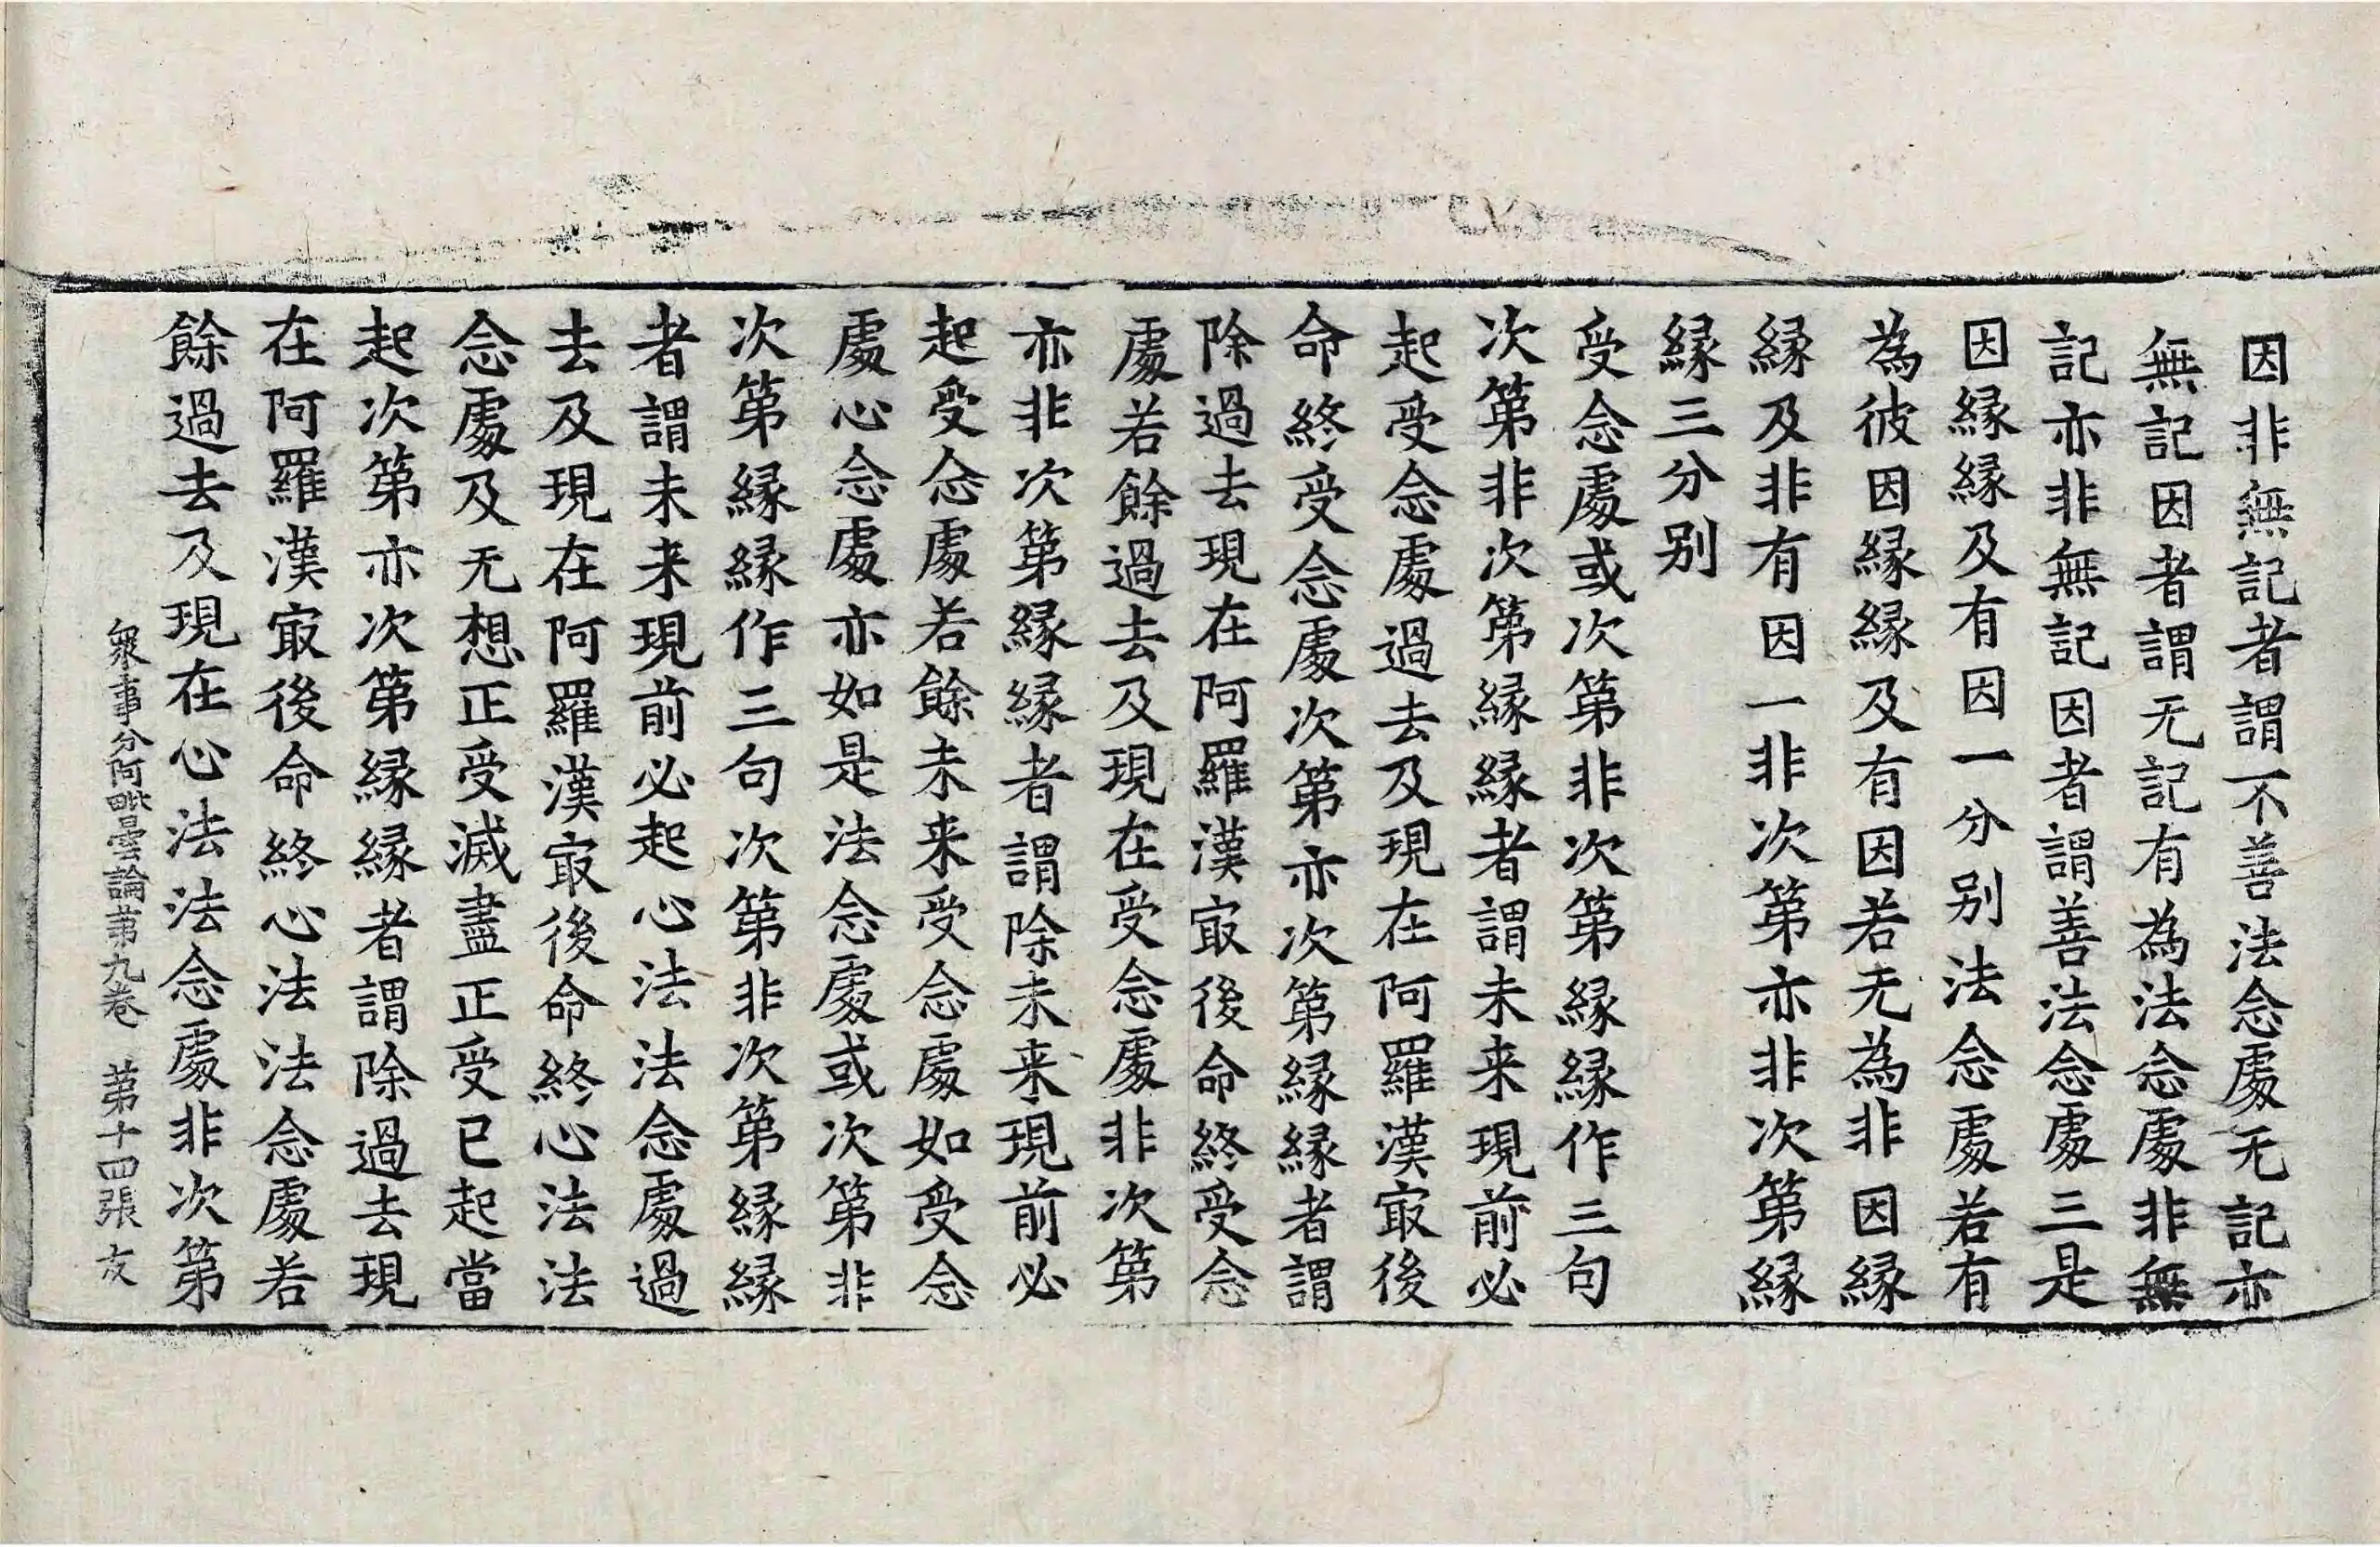 因非無記者謂不善法念處无記亦
無記因者謂无記有為法念處非無
記亦非無記因者謂善法念處三是
因緣緣及有因一分別法念處若有
為彼因緣緣及有因若无為非因緣
緣及非有因一非次第亦非次第緣
緣三分別
受念處或次第非次第緣緣作三句
次第非次第緣緣者謂未来現前必
起受念處過去及現在阿羅漢㝡後
命終受念處次第亦次第緣緣者謂
除過去現在阿羅漢㝡後命終受念
處若餘過去及現在受念處非次第
亦非次第緣緣者謂除未来現前必
起受念處若餘未来受念處如受念
處心念處亦如是法念處或次第非
次第緣緣作三句次第非次第緣緣
者謂未来現前必起心法法念處過
去及現在阿羅漢㝡後命終心法法
念處及无想正受滅盡正受已起當
起次第亦次第緣緣者謂除過去現
在阿羅漢㝡後命終心法法念處若
餘過去及現在心法法念處非次第
衆事分阿毗曇論第九卷 第十四張 友